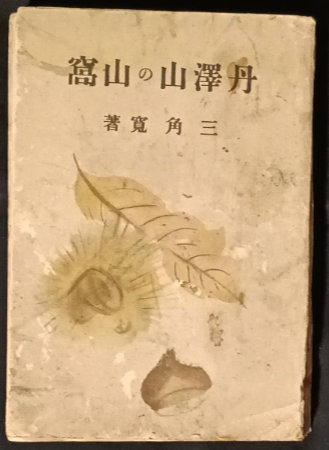 丹澤山の山窩
三角寛著